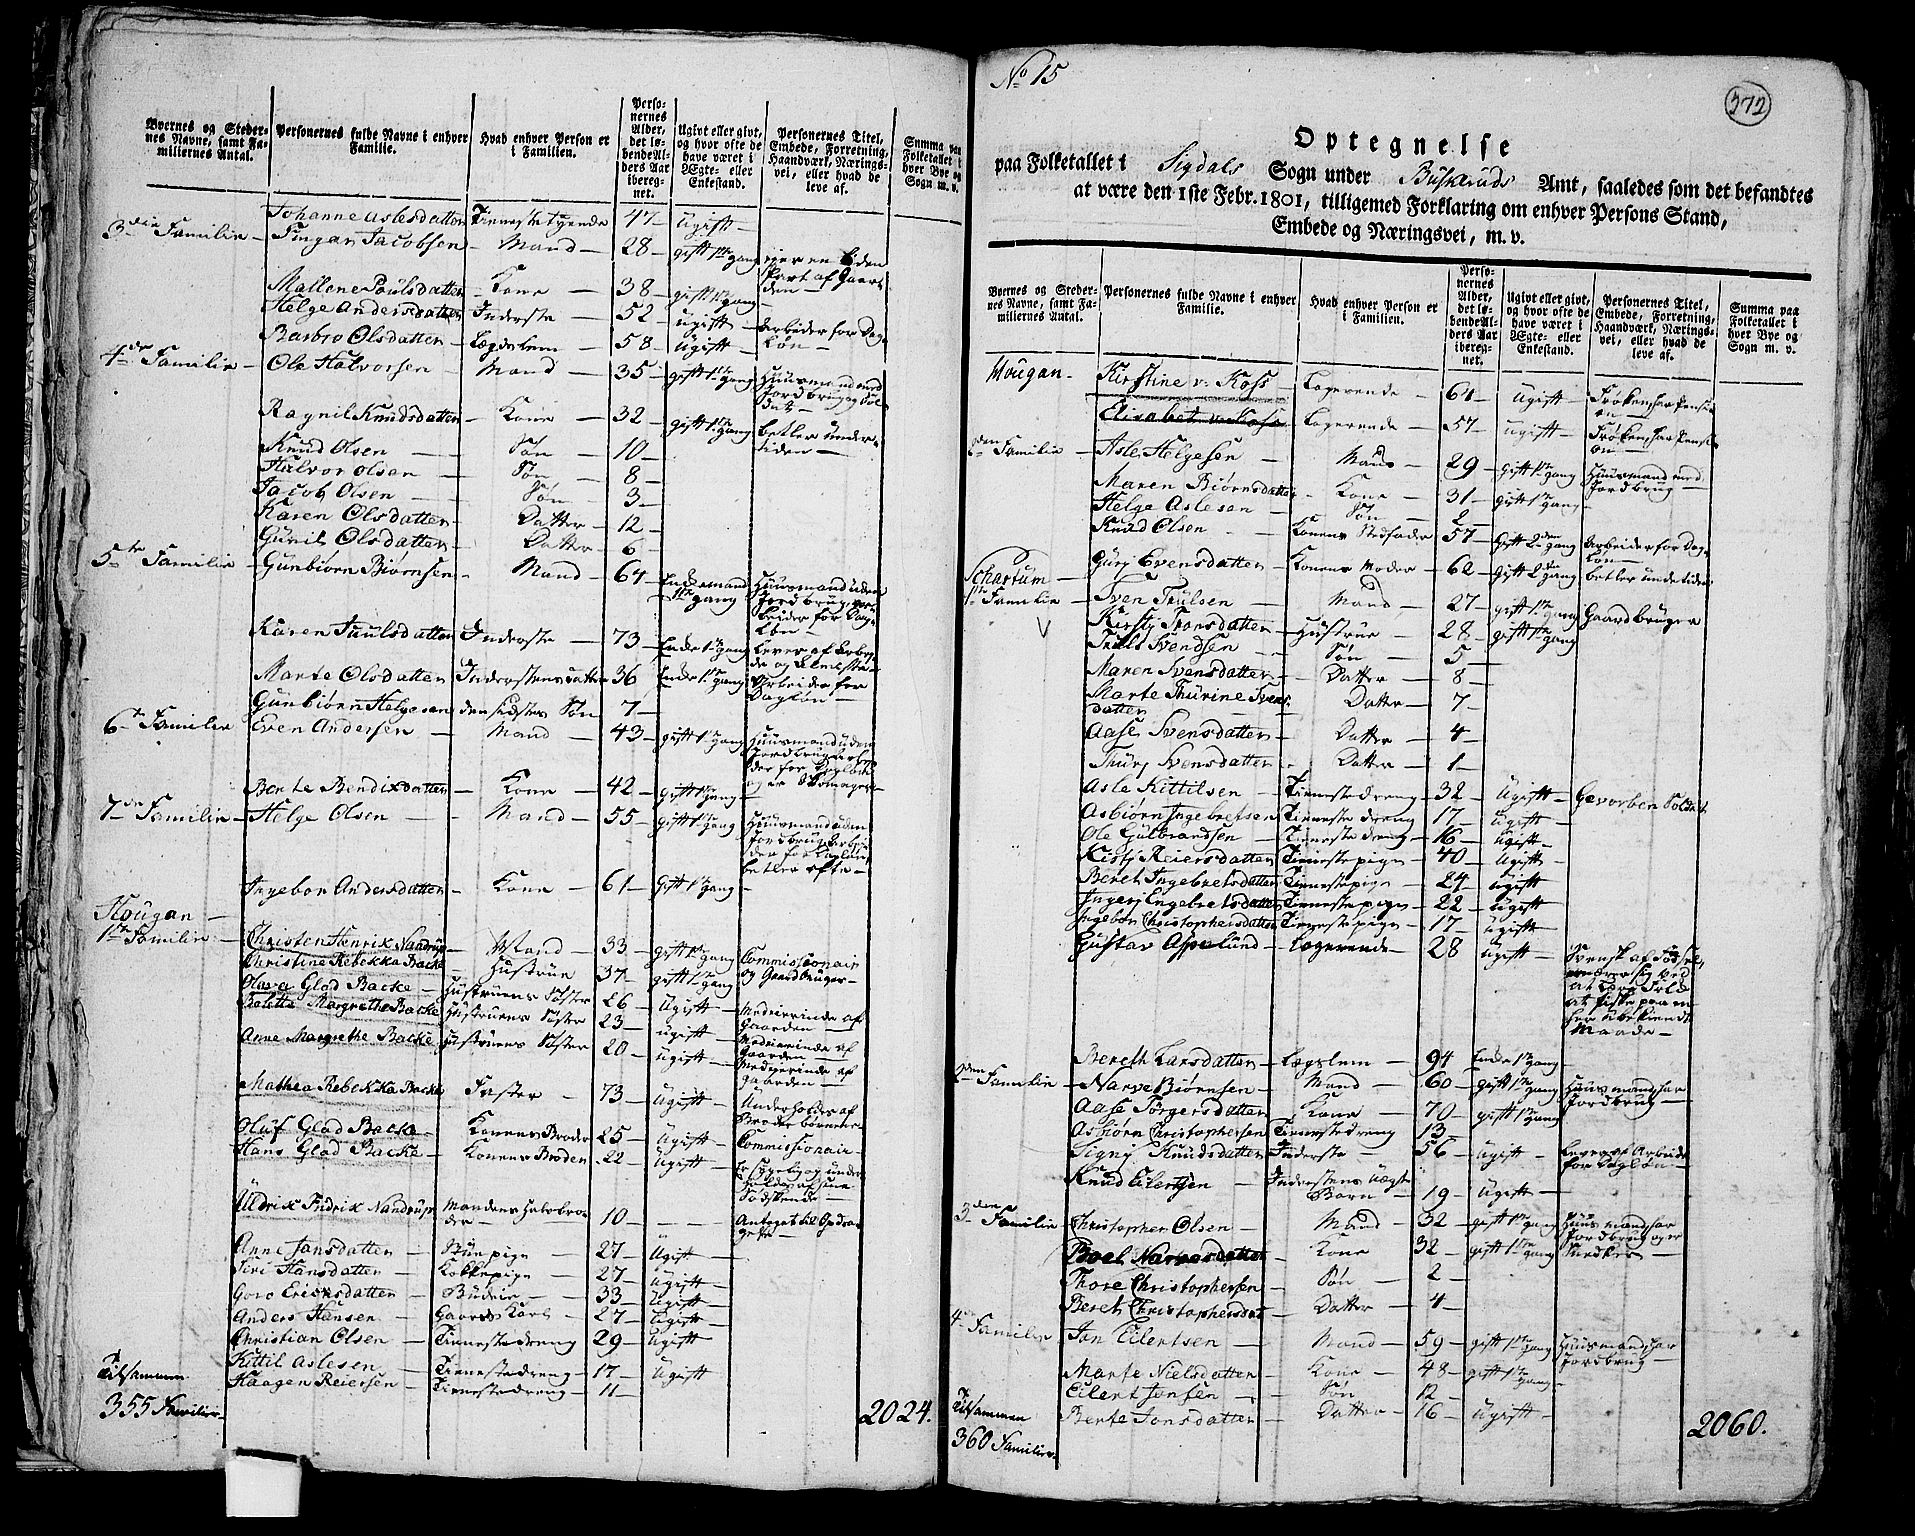 Byernes og Steder-
nes Navne, samt Fa-
miliernes Antal.
Personernes fulde Navne i enhver
Familie.
Hvad enhver Person er
i Familien.
Perso-
nernes
Alder,
det lø-
bende Al-
ders Aar
ibereg-
net.
Ugivt eller givt,
og hvor ofte de
have været i
Ægte- eller
Enkestand.
Personernes Titel,
Embede, Forretning,
Haandværk, Nærings-
vei, eller hvad de
leve af.
Summa paa
Folketallet i
hver Bye og
Sogn m. v.
Johanne Aslesdatter Tienestetyende 47 ugift
3die Familie Jacobsen Mand 28 gift 1te gang eier en liden Part af Gaarden
Mallene Poulsdatter Kone 38 gift 1te gang
Helge Andersdatter Inderste 52 ugift Arbeider for Dagløn
Barbro Olsdatter Lægdslem 58 ugift
4de Familie Ole Halvorsen Mand 35 gift 1te gang Huusmand med Jordbrug og Soldat
Ragnil Knudsdatter Kone 32 gift 1te gang betler undertiden
Knud Olsen Søn 10
Halvor Olsen Søn 8
Jacob Olsen Søn 3
Karen Olsdatter Datter 12
Guril Olsdatter Datter 6
5te Familie Gunbiørn Biørnsen Mand 64 Enkemand 1te gang Huusmand uden Jordbrug, arbeider for Dagløn
Karen Juulsdatter Inderste 73 Enke 1te gang Lever af Arbeyde og
Marte Olsdatter Inderstens datter 36 Enke 1te gang Arbeider for Dagløn
Gunbiørn Helgesen den sidstes Søn 7
6te Familie Even Andersen Mand 43 gift 1te gang Huusmand uden Jordbrug arbeider for Dagløn og er Skomager
Berte Bendixdatter Kone 42 gift 1te gang
7de Familie Helge Olsen Mand 55 gift 1te gang Huusmand uden Jordbrug arbeider for Dagløn, betler ofte
Ingebor Andersdatter Kone 61 gift 1te gang
Hougan
1te Familie Christen Henrik Nandrup Mand 33 gift 1te gang Commissionair og Gaardbruger
Christine Rebekka Backe Hustrue 37 gift 1te gang
Olava Glad Backe Hustruens Søster 26 ugift Medeierinde af Gaarden
Bolette Margrethe Backe Hustruens Søster 23 ugift Medeierinde af Gaarden
Anne Margrethe Backe Hustruens Søster 20 ugift Medeierinde af Gaarden
Mathea Rebekka Backe Faster 73 ugift Underholdes af Broder børnene
Oluf Glad Backe Konens Broder 25 ugift Commissionair
Hans Glad Backe Konens Broder 22 ugift Er Sygelig og underholdes af sine Sødskende
Uldrik Fridrik Nandrup Mandens Halvbroder 10 Antaget til Opdragelse
Anne Jansdatter Stuepige 27 ugift
Siri Hansdatter Kokkepige 27 ugift
Goro Ericksdatter Budeie 33 ugift
Anders Hansen Gaards Karl 27 ugift
Christian Olsen Tienestedreng 29 ugift
Kittil Aslesen Tienestedreng 17 ugift
Haagen Reiersen Tienestedreng 11
Tilsammen
355 Familier 2024.
No 15
372
Optegnelse
paa Folketallet i Sigdals Sogn under Buskeruds Amt, saaledes som det befandtes
at være den 1ste Febr. 1801, tilligemed Forklaring om enhver Persons Stand,
Embede og Næringsvei, m. v.
Byernes og Steder-
nes Navne, samt Fa-
miliernes Antal.
Personernes fulde Navne i enhver
Familie.
Hvad enhver Person er
i Familien.
Perso-
nernes
Alder,
det lø-
bende Al-
ders Aar
ibereg-
net.
Ugivt eller givt,
og hvor ofte de
have været i
Ægte- eller
Enkestand.
Personernes Titel,
Embede, Forretning,
Haandværk, Nærings-
vei, eller hvad de
leve af.
Summa paa
Folketallet i
hver Bye og
Sogn m. v.
Hougan Kirstine v. Koss Logerende 61 ugift Frøken, har Pension
Elisabet v. Koss Logerende 57 ugift Frøken, har Pension
2den Familie Asle Helgesen Mand 29 gift 1te gang Huusmand med Jordbrug
Maren Biørnsdatter Kone 31 gift 1te gang
Helge Aslesen Søn 2
Knud Olsen Konens Stedfader 57 gift 2den gang Arbeider for Dagløn
Gurj Evensdatter Konens Moder 62 gift 2den gang betler undertiden
Schartum
1te Familie Sven Trulsen Mand 27 gift 1te gang Gaardbruger
Kirstj Tronsdatter Hustrue 28 gift 1te gang
Truls Svendsen Søn 5
Maren Svensdatter Datter 8
Marte Thurine Svensdatter Datter 7
Aase Svensdatter Datter 4
Thurj Svensdatter Datter 1
Asle Kittilsen Tienestedreng 32 ugift Gevorben Soldat
Asbiørn Ingebretsen Tienestedreng 17 ugift
Ole Gulbrandsen Tienestedreng 16 ugift
Kistj Reiersdatter Tienestepige 40 ugift
Beret Ingebretsdatter Tienestepige 24 ugift
Ingerj Engebretsdatter Tienestepige 22 ugift
Ingebor Christophersdatter Tienestepige 17 ugift
Gustav Aspelund Logerende 28 ugift Svensk af Fødsel, nærer sig ved at at fiske paa en her ubekiendt Maade
Bereth Larsdatter Lægslem 94 Enke 1te gang
2den Familie Narve Biørnsen Mand 60 gift 1te gang Huusmand, har Jordbrug
Aase Torgersdatter Kone 70 gift 1te gang
Asbiørn Christophersen Tienestedreng 13
Signj Knudsdatter Inderste 56 ugift Lever af Arbeide for Dagløn
Knud Eilertsen Inderstens Uægte Barn 19 ugift
3die Familie Christopher Olsen Mand 32 gift 1te gang Huusmand, har Jordbrug og er Snedker
Boel Narvesdatter Kone 32 gift 1te gang
Thore Christophersen Søn 2
Beret Christophersdat Datter 4
4de Familie Jon Eilertsen Mand 59 gift 1te gang Huusmand, har Jordbrug
Marte Nielsdatter Kone 48 gift 1te gang
Eilert Jonsen Søn 12
Berte Jonsdatter Datter 16 ugift
Tilsammen
360 Familier 2060.